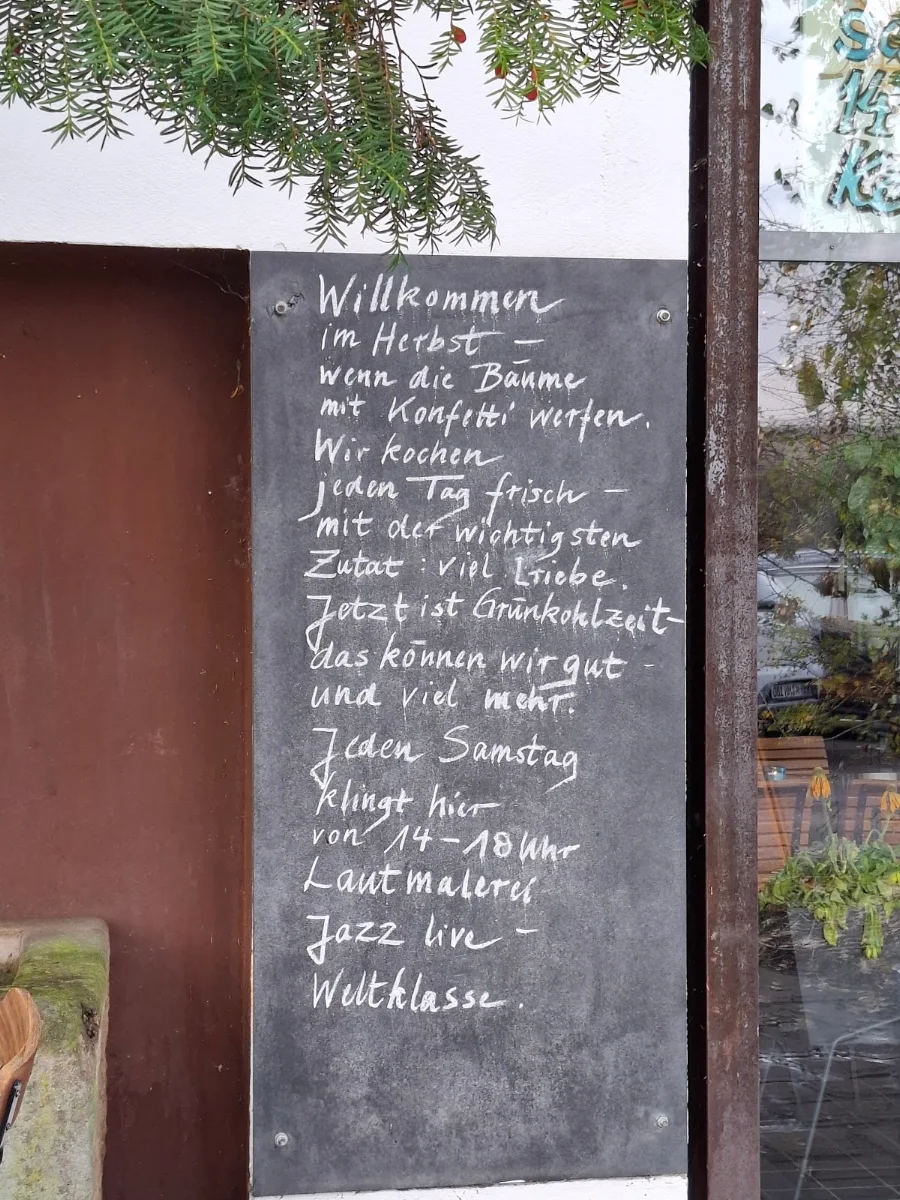 Willkommen
im Herbst –
wenn die Bäume
mit Konfetti werfen.
Wir kochen
jeden Tag frisch –
mit der wichtigsten
Zutat : viel Liebe.
Jetzt ist Grünkohlzeit –
das können wir gut –
und viel mehr.
Jeden Samstag
klingt hier
von 14 – 18 Uhr
Lautmalerei
Jazz live –
Weltklasse.
14